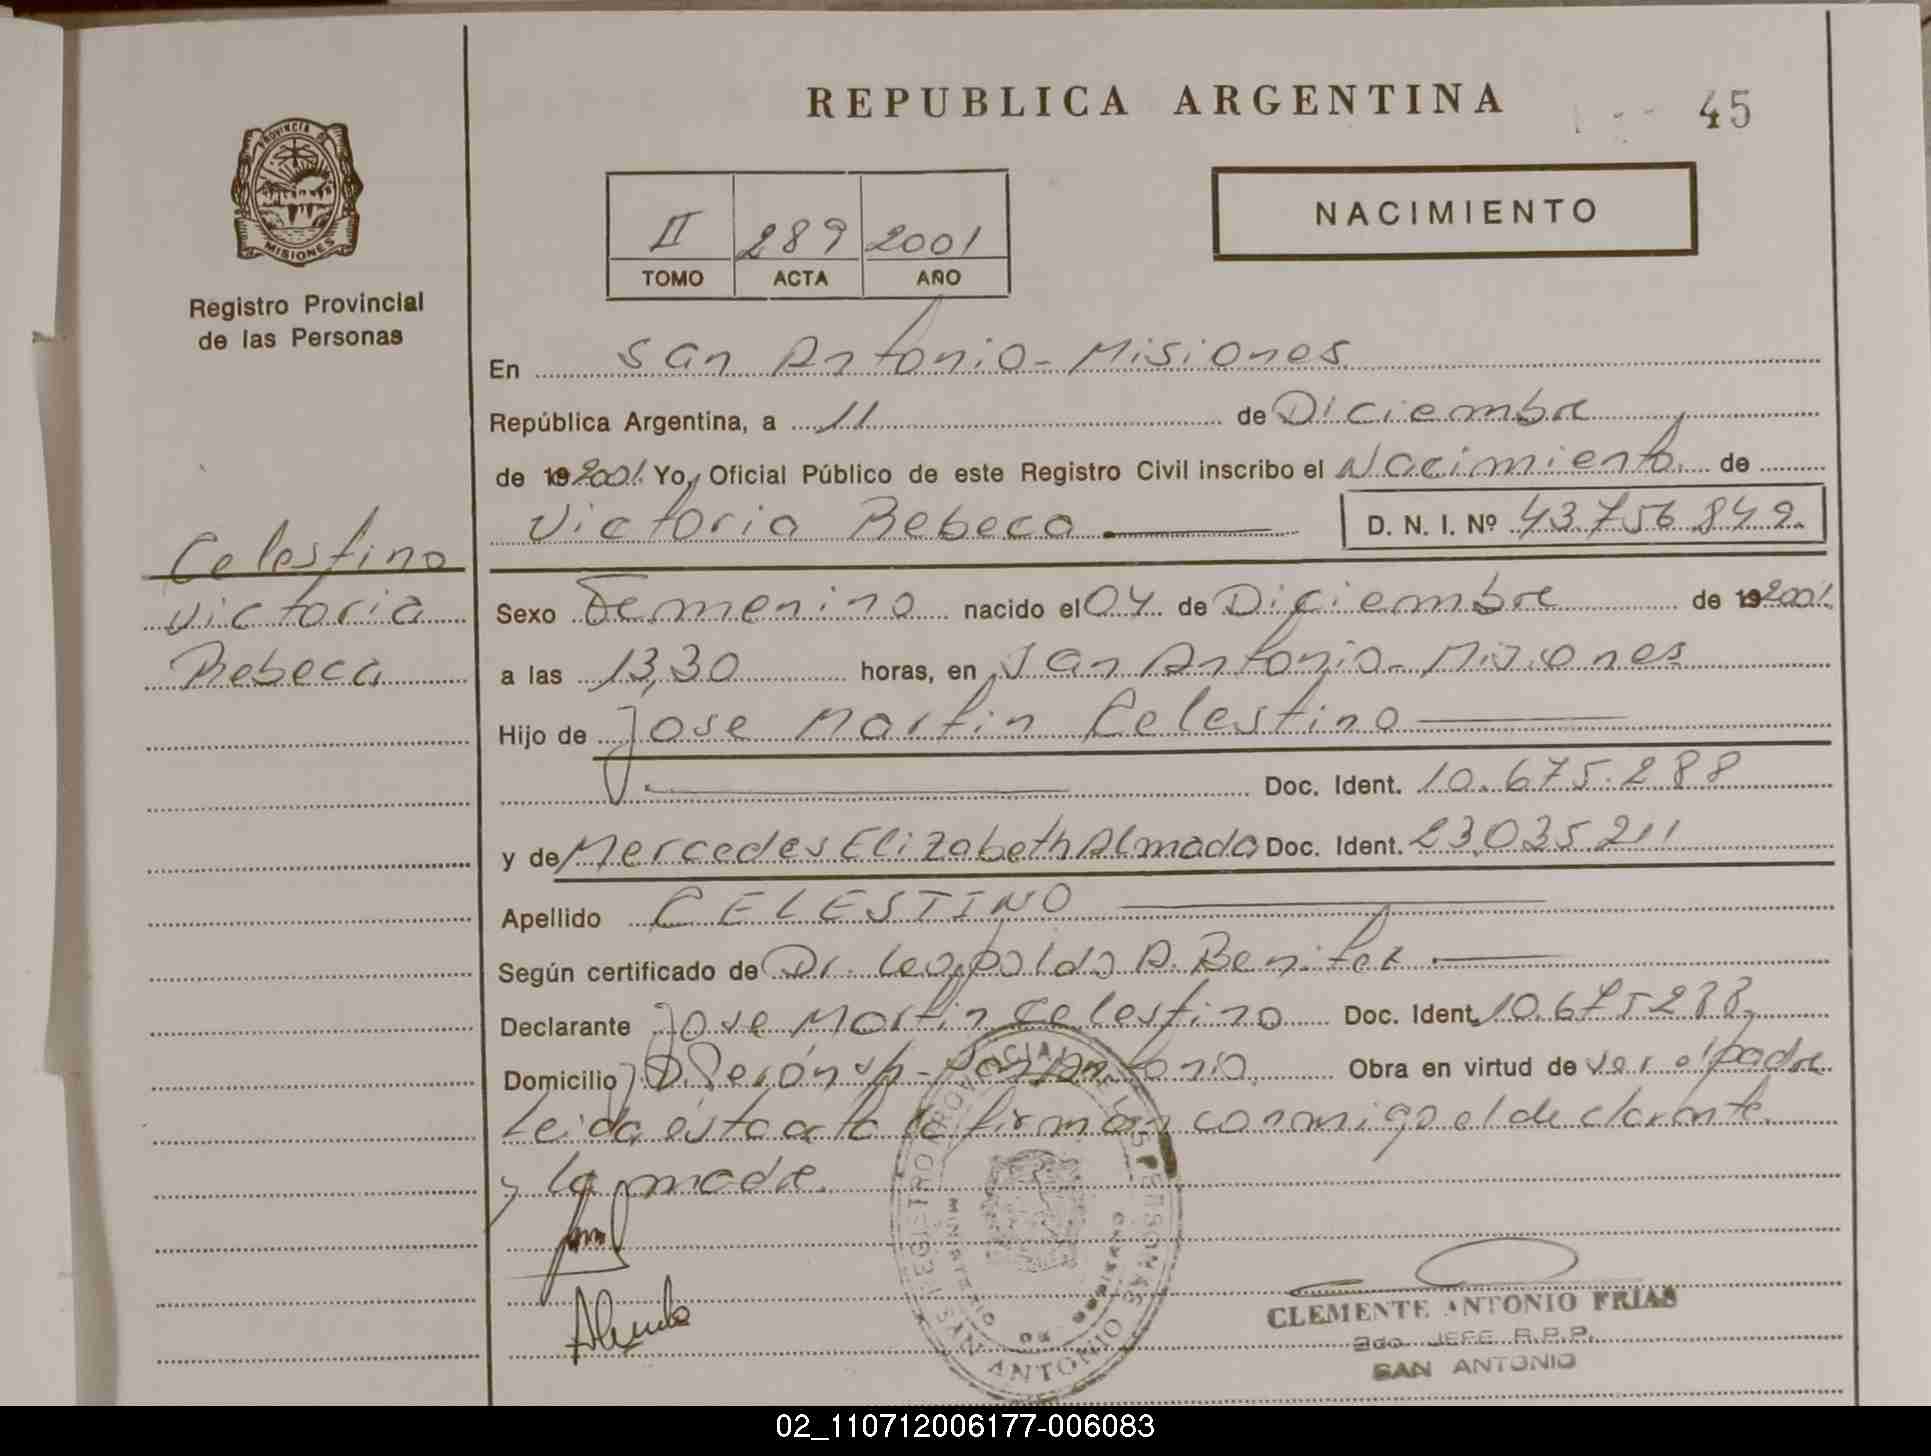 REPUBLICA ARGENTINA
45
PROVINCIA DE
MISIONES
Registro Provincial
de las Personas
II 289 2001
TOMO ACTA AÑO
NACIMIENTO
En San Antonio - Misiones
República Argentina, a 11 de Diciembre
de 19 2001. Yo, Oficial Público de este Registro Civil inscribo el Nacimiento de
Victoria Rebeca D. N. I. Nº 43.756.849.
Celestino
Victoria
Rebeca
Sexo Femenino nacido el 04 de Diciembre de 19 2001.
a las 13,30 horas, en San Antonio - Misiones
Hijo de Jose Martin Celestino
Doc. Ident. 10.675.288
y de Mercedes Elizabeth Almada Doc. Ident. 23.035.211
Apellido CELESTINO
Según certificado de Dr. Leopoldo A. Benitez
Declarante Jose Martin Celestino Doc. Ident. 10.675.288.
Domicilio J. D. Perón s/n - San Antonio. Obra en virtud de ser el padre
Leida ésta acta la firman conmigo el declarante
y la madre.
Almada
REGISTRO PROVINCIAL DE LAS PERSONAS
MINISTERIO DE GOBIERNO
SAN ANTONIO
CLEMENTE ANTONIO FRIAS
2do. JEFE R.P.P.
SAN ANTONIO
02_110712006177-006083